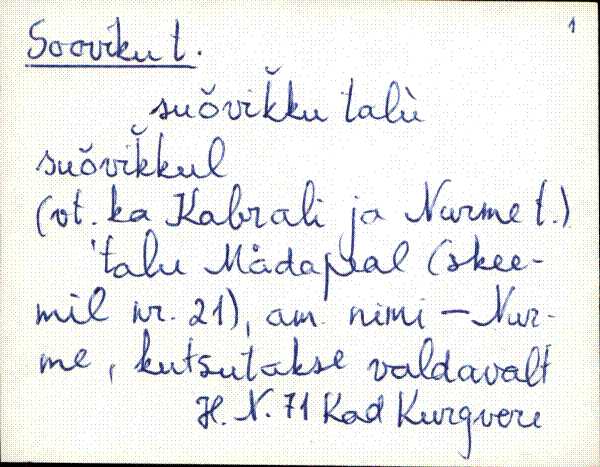 1
Sooviku t.
suŏvik̆ku talù
suŏvik̆kul
(vt. ka Kabrali ja Nurme t.)
'talu Mådapeal (skee-
mil nr. 21), am. nimi – Nur-
me, kutsutakse valdavalt
H. N. 71 Kad Kurgvere